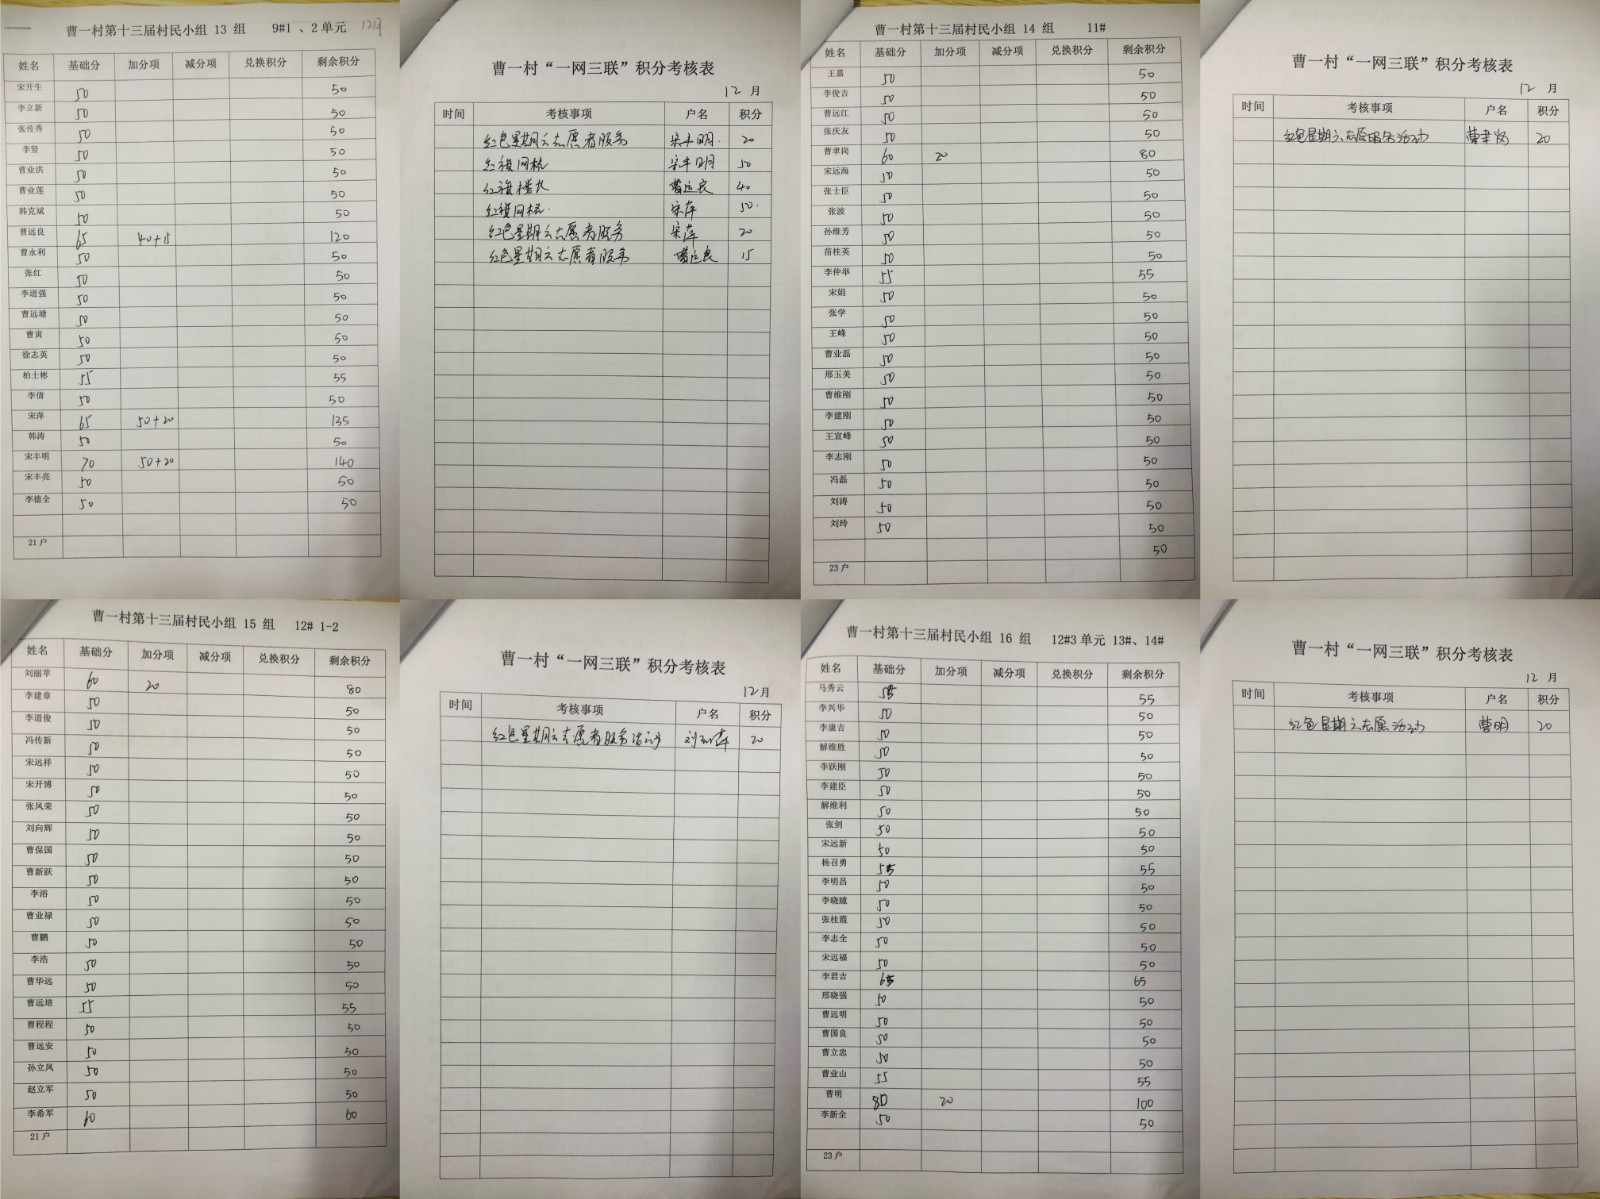 曹一村第十三届村民小组 13 组 9#1 、2单元 12月
姓名 基础分 加分项 减分项 兑换积分 剩余积分
宋开生 50 50
李立新 50 50
张传秀 50 50
李坚 50 50
曹业洪 50 50
曹业莲 50 50
韩克斌 50 50
曹远良 65 40+15 120
曹永利 50 50
张红 50 50
李道强 50 50
曹远塘 50 50
曹寅 50 50
徐志英 50 50
柏士彬 55 55
李倩 50 50
宋萍 65 50+20 135
韩涛 50 50
宋丰明 70 50+20 140
宋丰亮 50 50
李德全 50 50
21户
曹一村“一网三联”积分考核表
12 月
时间 考核事项 户名 积分
红色星期六志愿者服务 宋丰明 20
红旗网格 宋丰明 50
红旗楼长 曹远良 40
红旗网格 宋萍 50
红色星期六志愿者服务 宋萍 20
红色星期六志愿者服务 曹远良 15
曹一村第十三届村民小组 14 组 11#
姓名 基础分 加分项 减分项 兑换积分 剩余积分
王嘉 50 50
李俊吉 50 50
曹远江 50 50
张庆友 50 50
曹聿岗 60 20 80
宋远海 50 50
张士臣 50 50
张波 50 50
孙维芳 50 50
苗桂英 50 50
李仲举 55 55
宋娟 50 50
张学 50 50
王峰 50 50
曹业磊 50 50
邢玉美 50 50
曹维刚 50 50
李建刚 50 50
王宣峰 50 50
李志刚 50 50
冯磊 50 50
刘涛 50 50
刘玲 50 50
50
23户
曹一村“一网三联”积分考核表
12 月
时间 考核事项 户名 积分
红色星期六志愿服务活动 曹聿岗 20
曹一村第十三届村民小组 15 组 12# 1-2
姓名 基础分 加分项 减分项 兑换积分 剩余积分
刘丽苹 60 20 80
李建章 50 50
李道俊 50 50
冯传新 50 50
宋远祥 50 50
宋开博 50 50
张风荣 50 50
刘向辉 50 50
曹保国 50 50
曹新跃 50 50
李浴 50 50
曹业禄 50 50
曹鹏 50 50
李浩 50 50
曹华远 50 50
曹远培 55 55
曹程程 50 50
曹远安 50 50
孙立凤 50 50
赵立军 50 50
李希军 60 60
21户
曹一村“一网三联”积分考核表
12月
时间 考核事项 户名 积分
红色星期六志愿者服务活动 刘丽苹 20
曹一村第十三届村民小组 16 组 12#3单元 13#、14#
姓名 基础分 加分项 减分项 兑换积分 剩余积分
马秀云 55 55
李兴华 50 50
李康吉 50 50
解维胜 50 50
李跃刚 50 50
李建臣 50 50
解维利 50 50
张剑 50 50
宋远新 50 50
杨召勇 55 55
李明昌 50 50
李晓瞳 50 50
张桂霞 50 50
李志全 50 50
宋远福 50 50
李君吉 65 65
邢晓强 50 50
曹远明 50 50
曹国良 50 50
曹立忠 50 50
曹业山 55 55
曹明 80 20 100
李新全 50 50
23户
曹一村“一网三联”积分考核表
12 月
时间 考核事项 户名 积分
红色星期六志愿活动 曹明 20